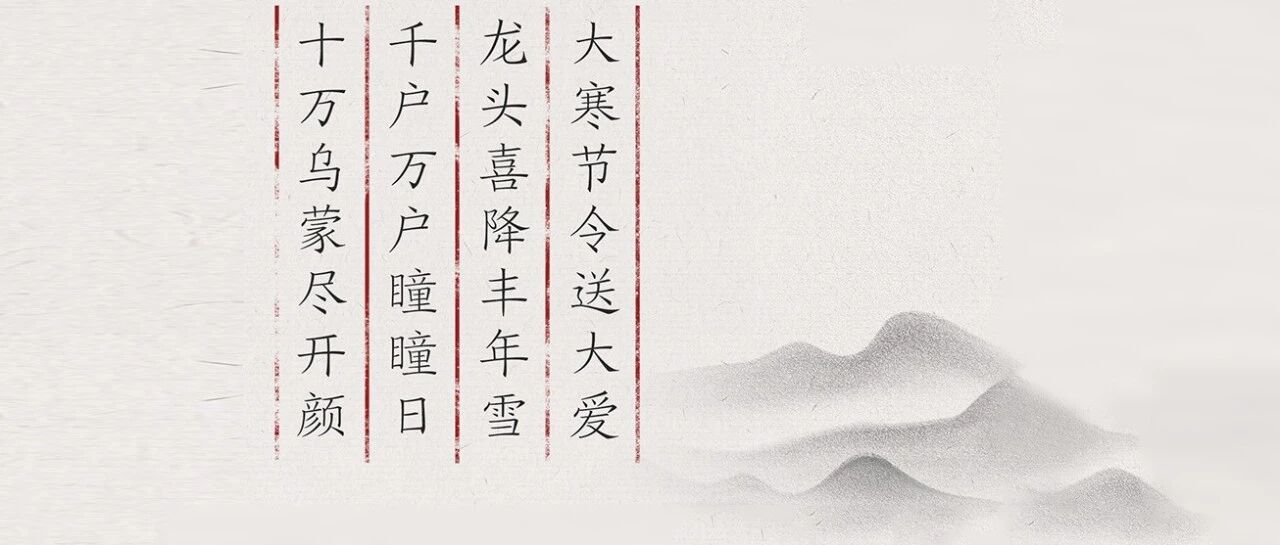 大寒节令送大爱
龙头喜降丰年雪
千户万户瞳瞳日
十万乌蒙尽开颜